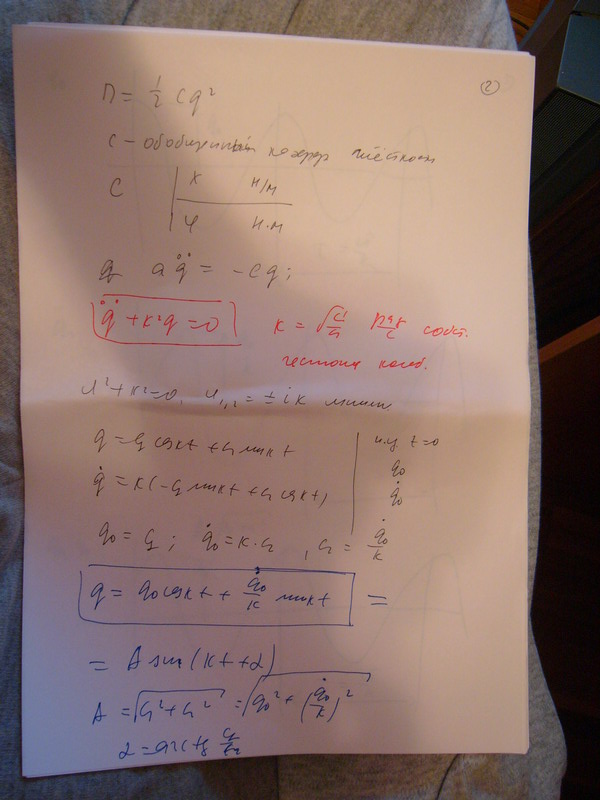 2
П = 1/2 c q²
c – обобщенный коэфф. жёсткости
c | x н/м
φ н·м
a q̈ = -cq;
q̈ + k²q = 0 k = √(c/a) рад/с собст.
частота колеб.
μ²+k²=0, μ₁,₂ = ± i k
q = c₁ cos kt + c₂ sin kt | н.у t=0
q̇ = k(-c₁ sin kt + c₂ cos kt) | q₀
q̇₀
q₀ = c₁; q̇₀ = k·c₂, c₂ = q̇₀/k
q = q₀ cos kt + q̇₀/k sin kt =
= A sin(kt+α)
A = √(c₁²+c₂²) = √(q₀² + (q̇₀/k)²)
α = arctg c₁/c₂